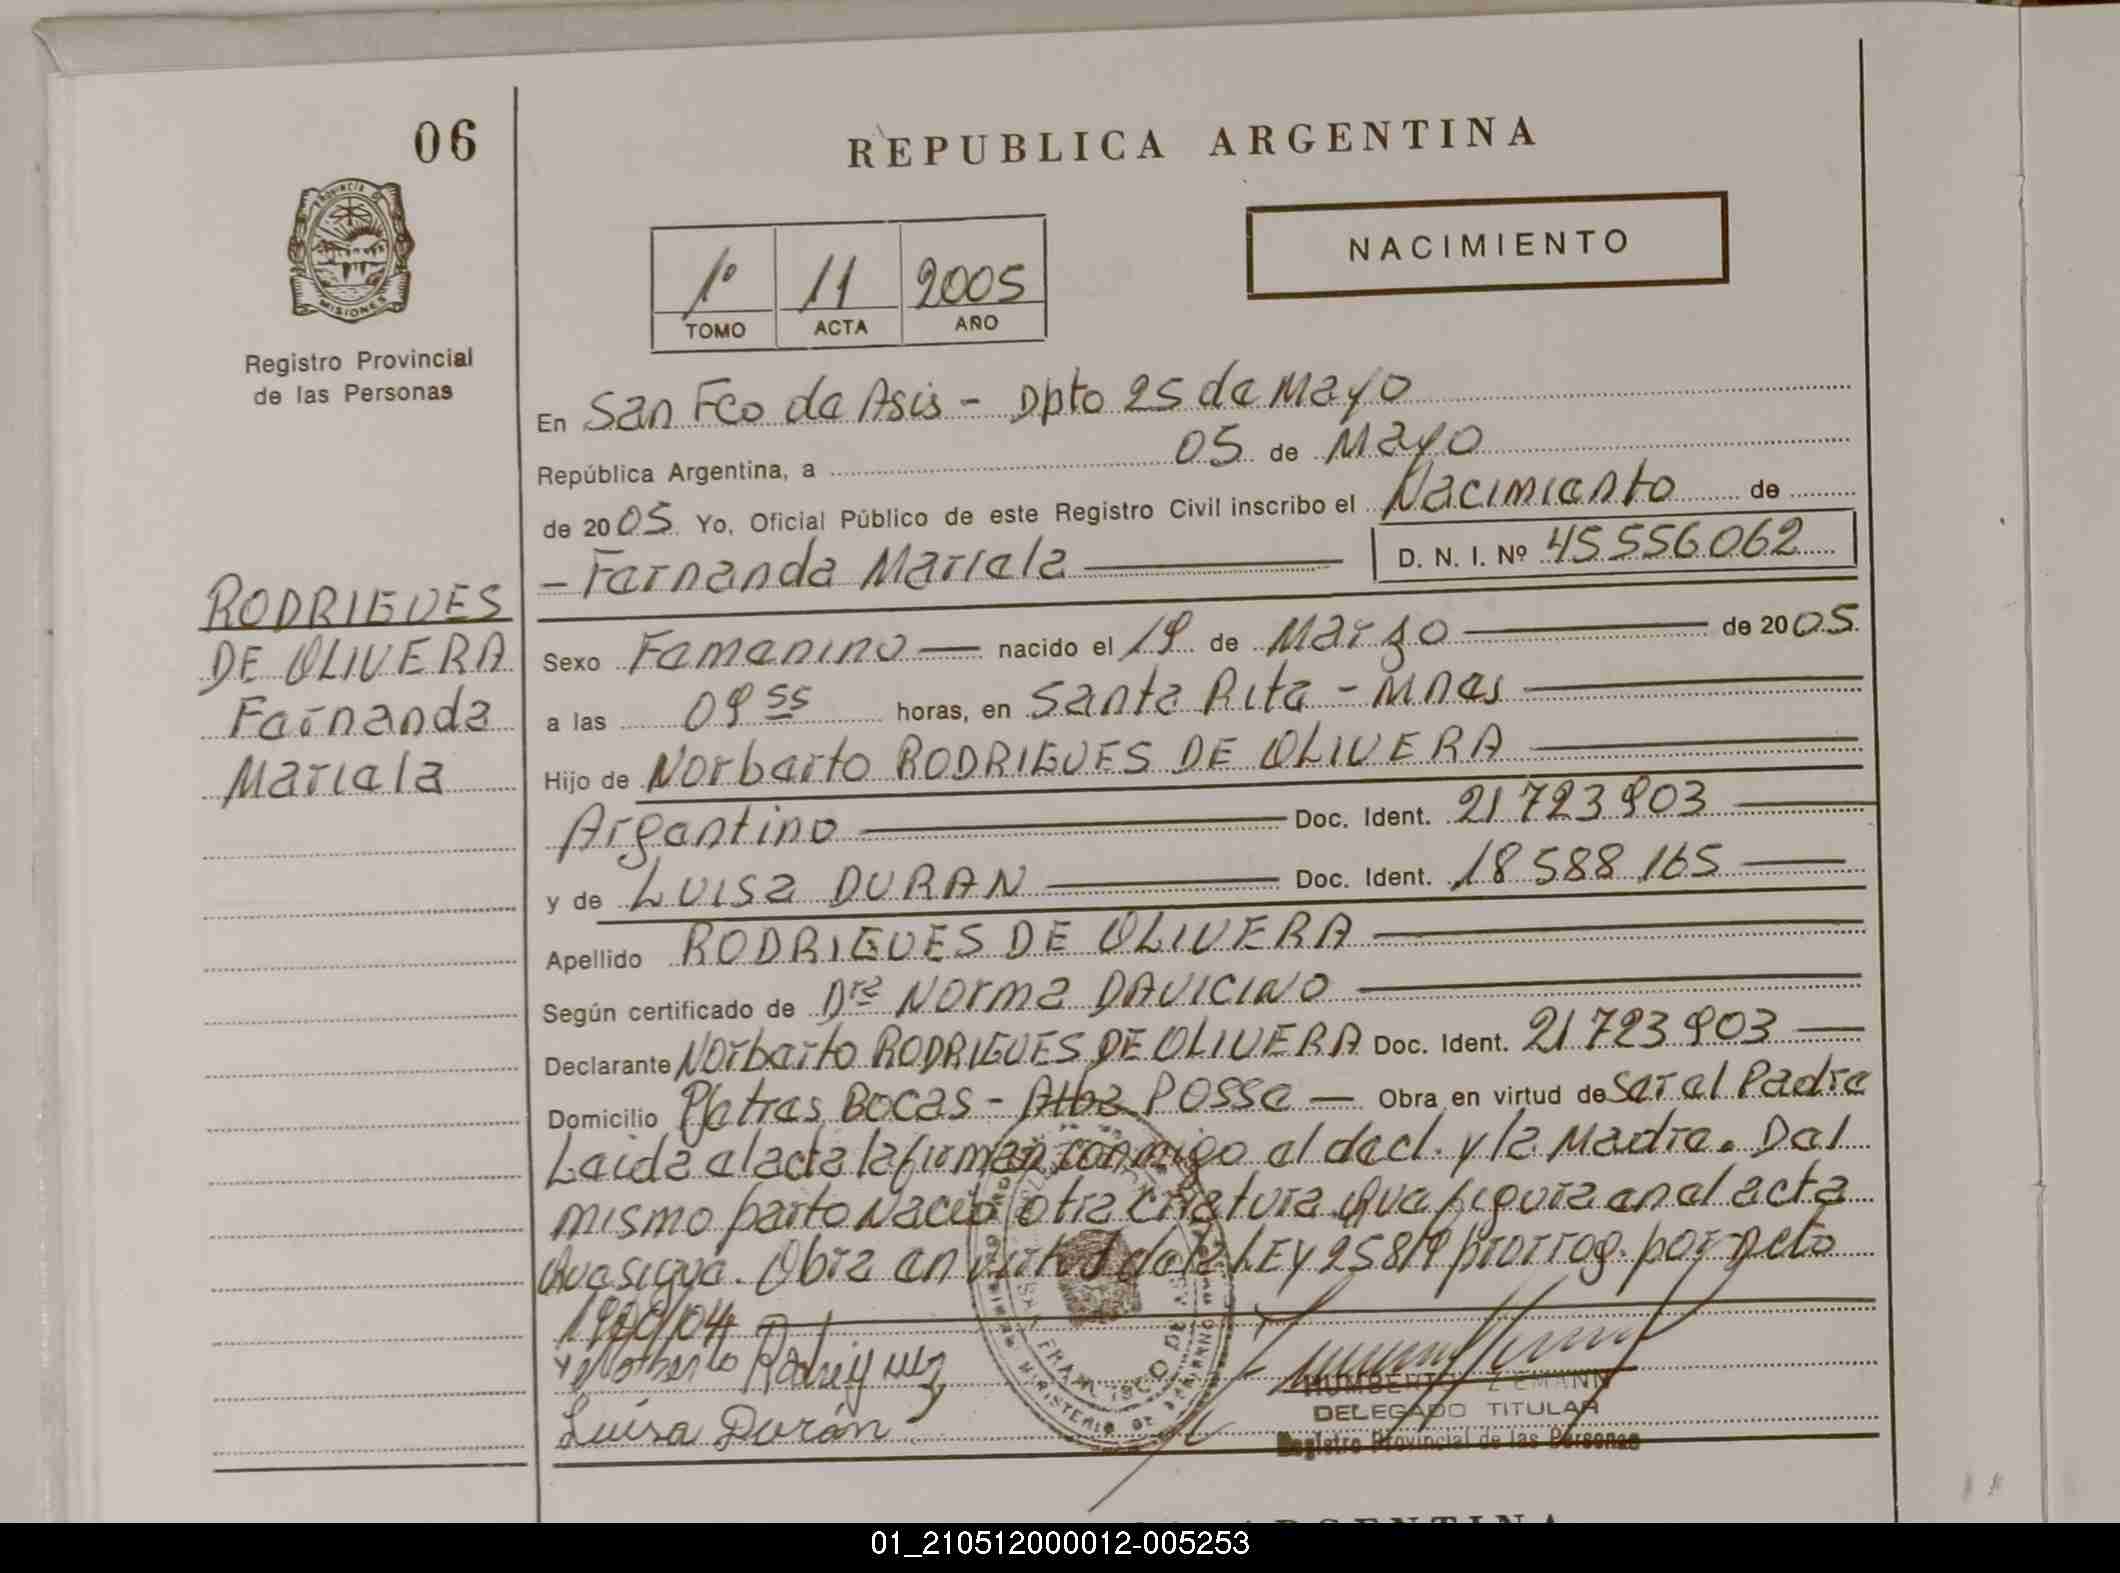 06
REPUBLICA ARGENTINA
PROVINCIA DE
MISIONES
Registro Provincial
de las Personas
1º 11 2005
TOMO ACTA AÑO
NACIMIENTO
En San Fco de Asis - Dpto 25 de Mayo
República Argentina, a 05 de Mayo
de 2005 Yo, Oficial Público de este Registro Civil inscribo el Nacimiento de
- Fernanda Mariela D. N. I. Nº 45556062
RODRIGUES
DE OLIVERA
Fernanda
Mariela
Sexo Femenino nacido el 19 de Marzo de 2005
a las 09 55 horas, en Santa Rita - Mnes
Hijo de Norberto RODRIGUES DE OLIVERA
Argentino Doc. Ident. 21 723 903
y de Luisa DURAN Doc. Ident. 18 588 165
Apellido RODRIGUES DE OLIVERA
Según certificado de Dra Norma DAVICINO
Declarante Norberto RODRIGUES DE OLIVERA Doc. Ident. 21 723 903
Domicilio Bocas - Alba POSSE Obra en virtud de ser el Padre
Leida el acta la firman conmigo el decl. y la Madre. Del
mismo parto Nació otra criatura que figura en el acta
que sigue. Obra en virtud de la LEY 25819 prorrog. por Dcto
/04
Norberto Rodriguez
Luisa Durán
HUMBERTO
DELEGADO TITULAR
Registro Provincial de las Personas
ARGENTINA
01_210512000012-005253